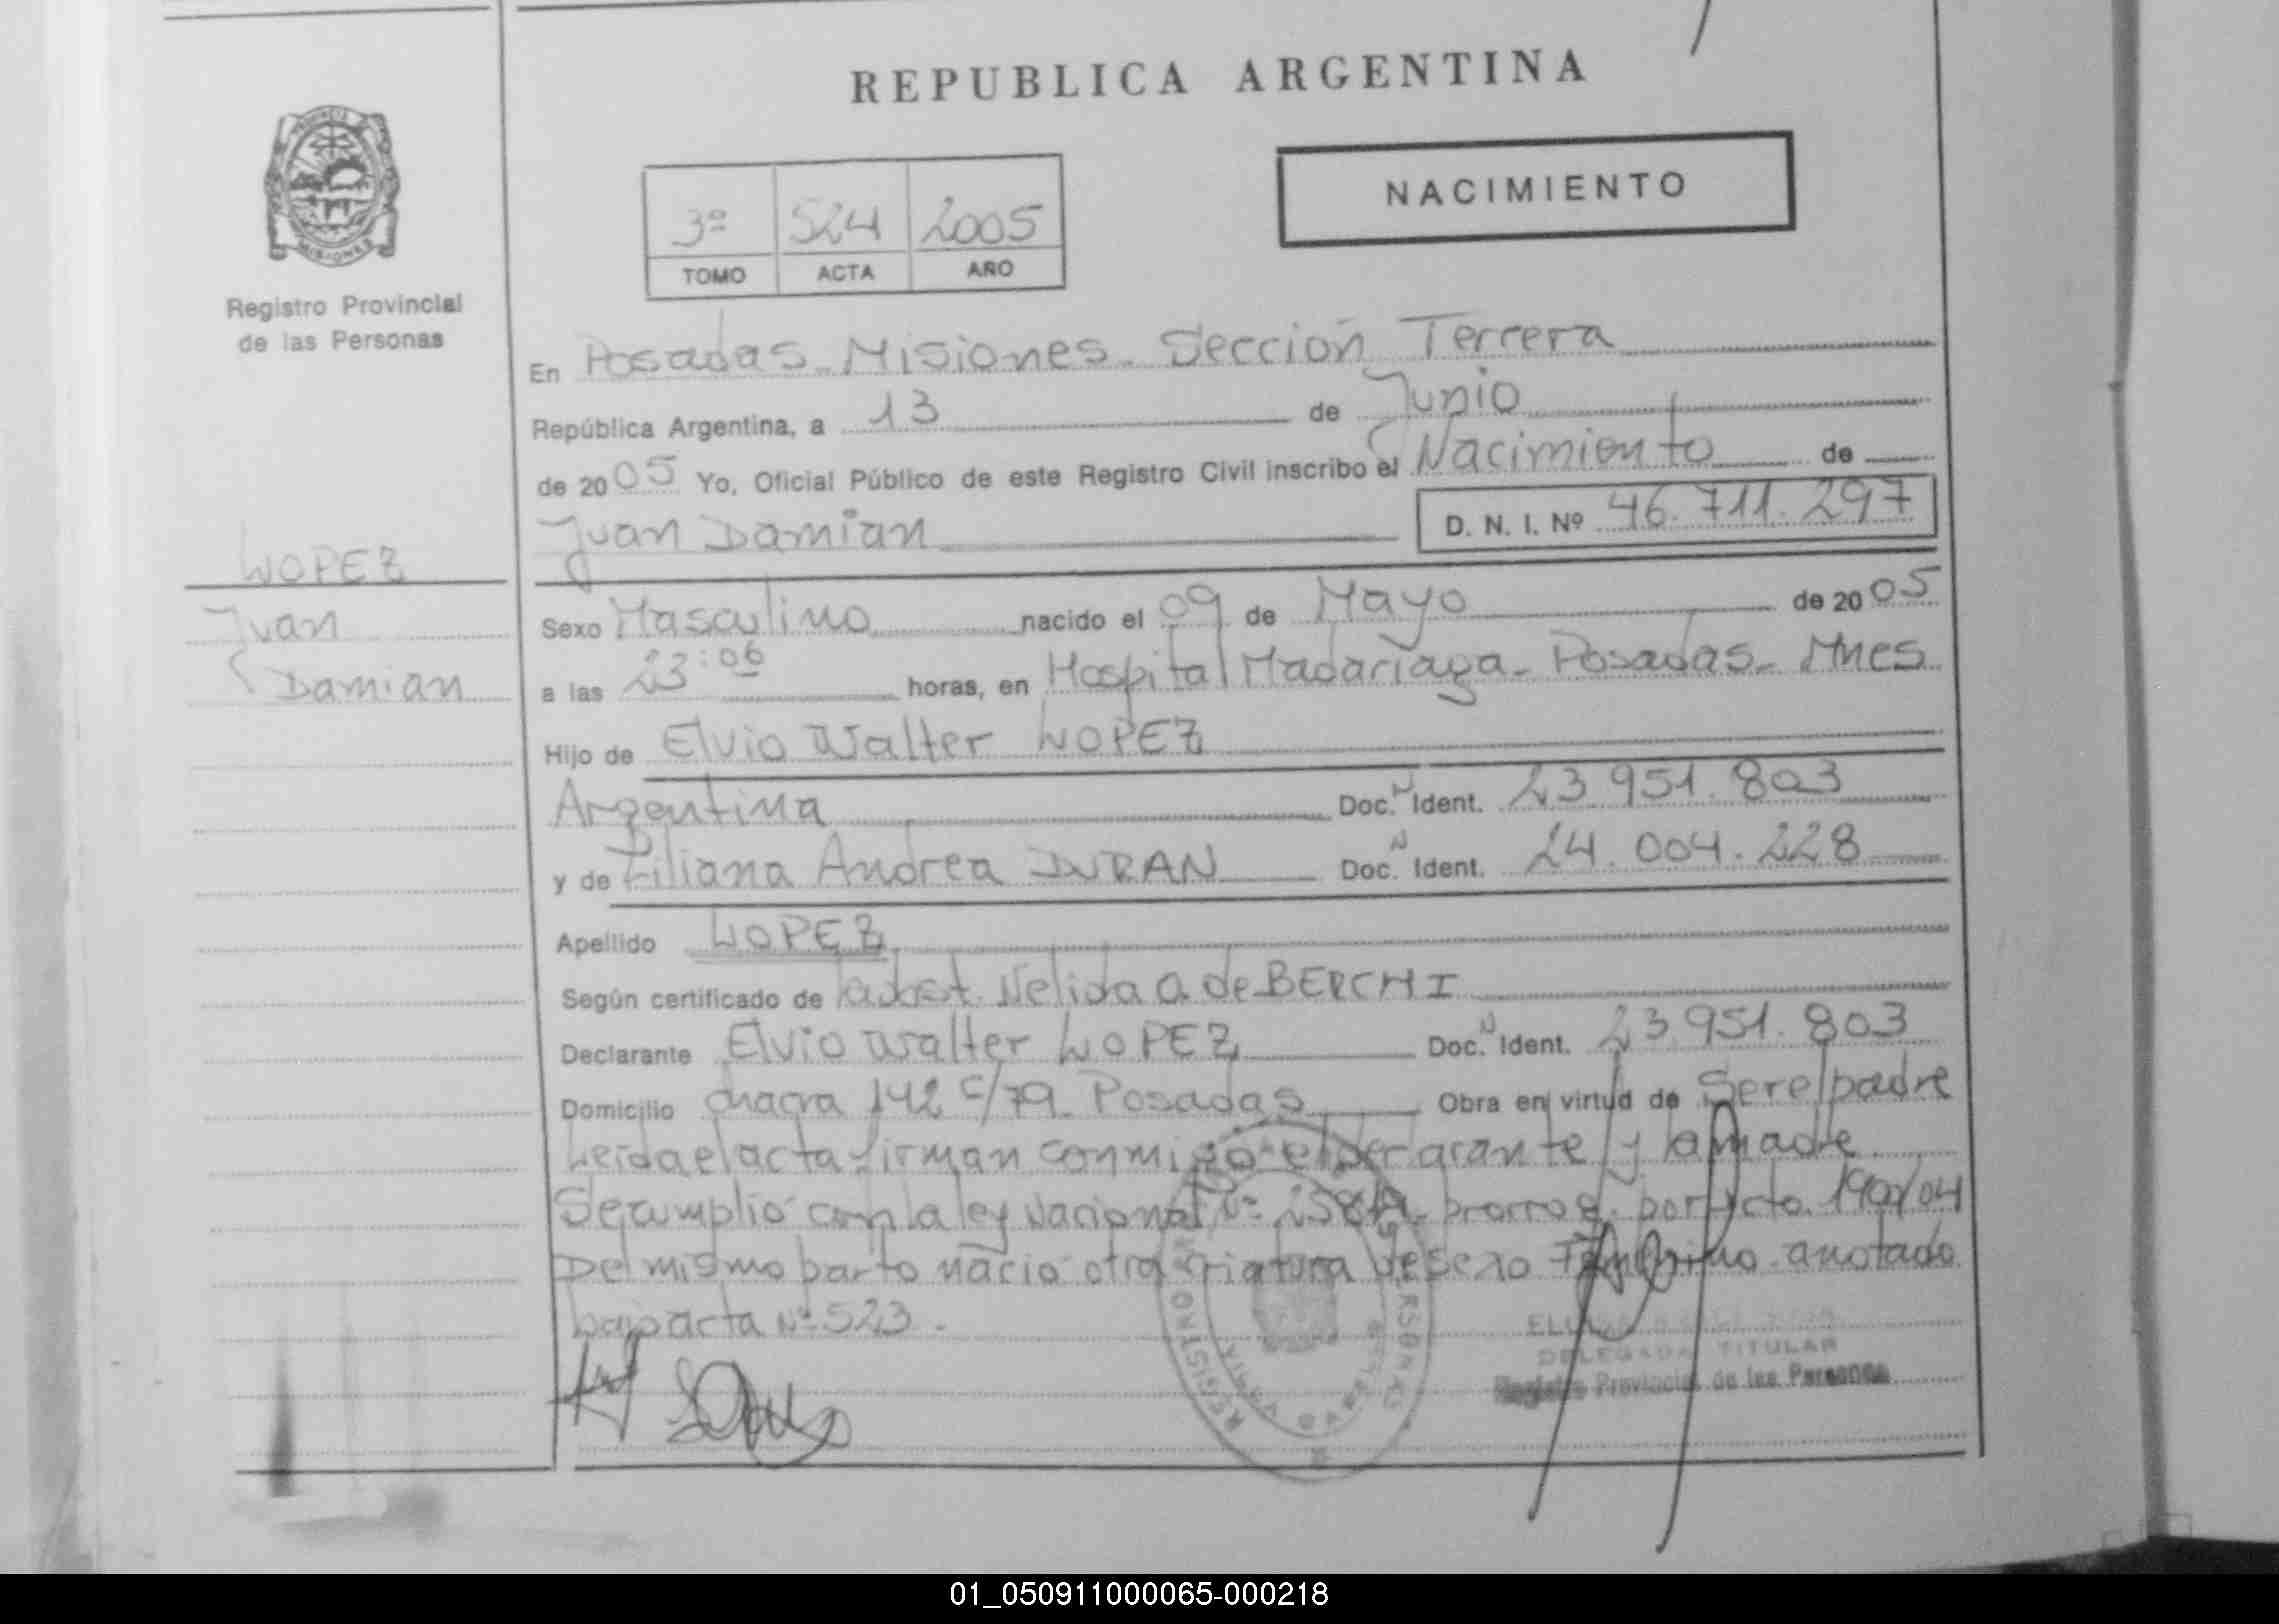 REPUBLICA ARGENTINA
NACIMIENTO
3º 524 2005
TOMO ACTA AÑO
MISIONES
Registro Provincial
de las Personas
En Posadas - Misiones - Sección Tercera
República Argentina, a 13 de Junio
de 2005 Yo, Oficial Público de este Registro Civil inscribo el Nacimiento de
Juan Damian D. N. I. Nº 46.711.297
LOPEZ
Juan
Damian
Sexo Masculino nacido el 09 de Mayo de 2005
a las 23:06 horas, en Hospital Madariaga - Posadas - Mnes
Hijo de Elvio Walter LOPEZ
Argentina Doc. N Ident. 23.951.803
y de Liliana Andrea DURAN Doc. N Ident. 24.004.228
Apellido LOPEZ
Según certificado de la obst. Nelida A. de BERCHI
Declarante Elvio Walter LOPEZ Doc. N Ident. 23.951.803
Domicilio chacra 142 c/79 Posadas Obra en virtud de Ser el padre
Leida el acta firman conmigo el declarante y la madre
Se cumplio con la ley Nacional Nº prorrog. por Dcto.
Del mismo parto nacio otra criatura de sexo anotado
bajo acta Nº 523.
DELEGADA TITULAR
Registro Provincial de las Personas
01_050911000065-000218